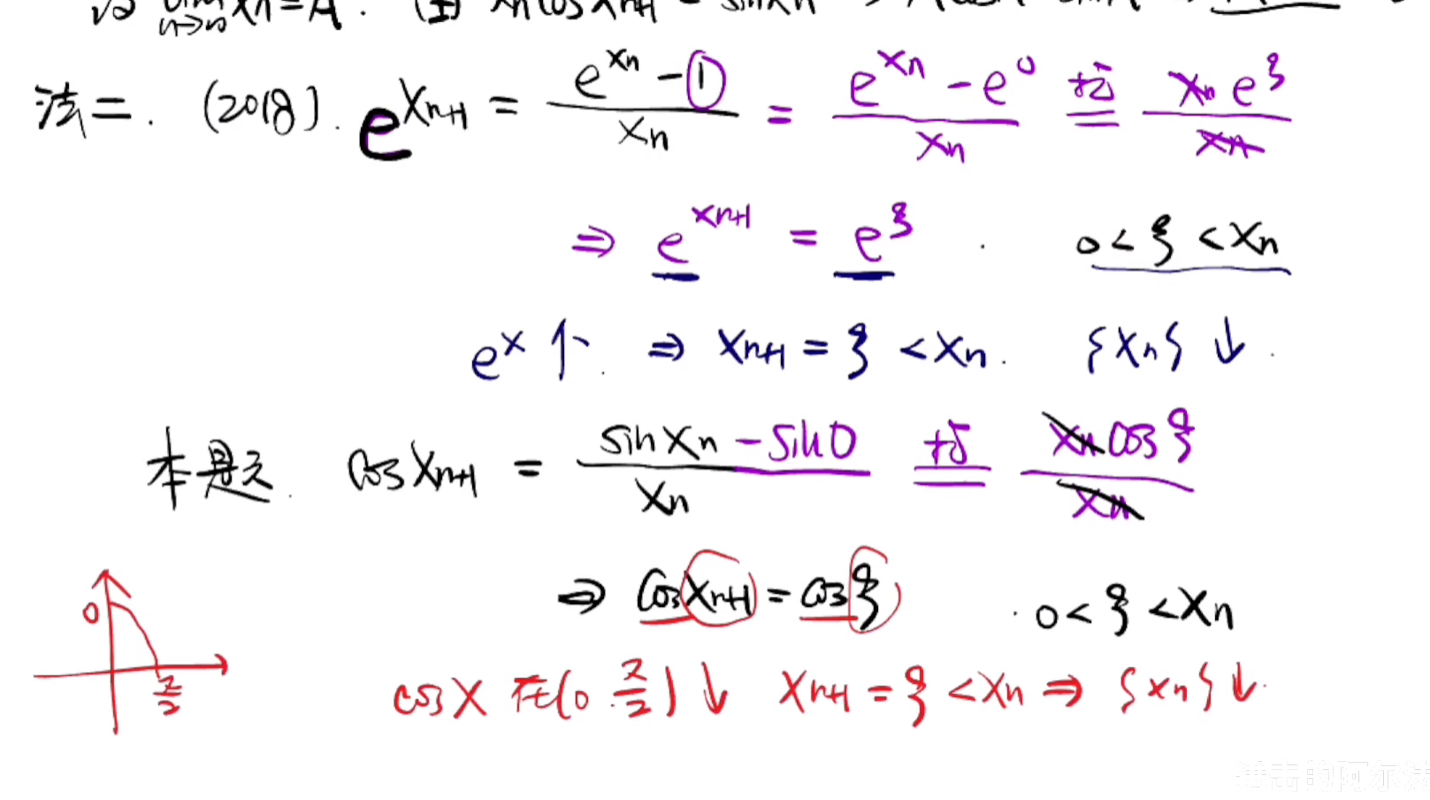 lim n→∞ xn = A. xn cos xn+1 = sin xn
法二. (2018). e^{xn+1} = (e^{xn} - 1)/xn = (e^{xn} - e^0)/xn 拉 = xn e^ξ/xn
⇒ e^{xn+1} = e^ξ . 0 < ξ < xn
e^x 个. ⇒ xn+1 = ξ < xn. {xn} ↓.
本题. cos xn+1 = (sin xn - sin 0)/xn 拉 = xn cos ξ/xn
⇒ cos xn+1 = cos ξ . 0 < ξ < xn
0
π/2
cos x 在(0. π/2) ↓ xn+1 = ξ < xn ⇒ {xn} ↓.